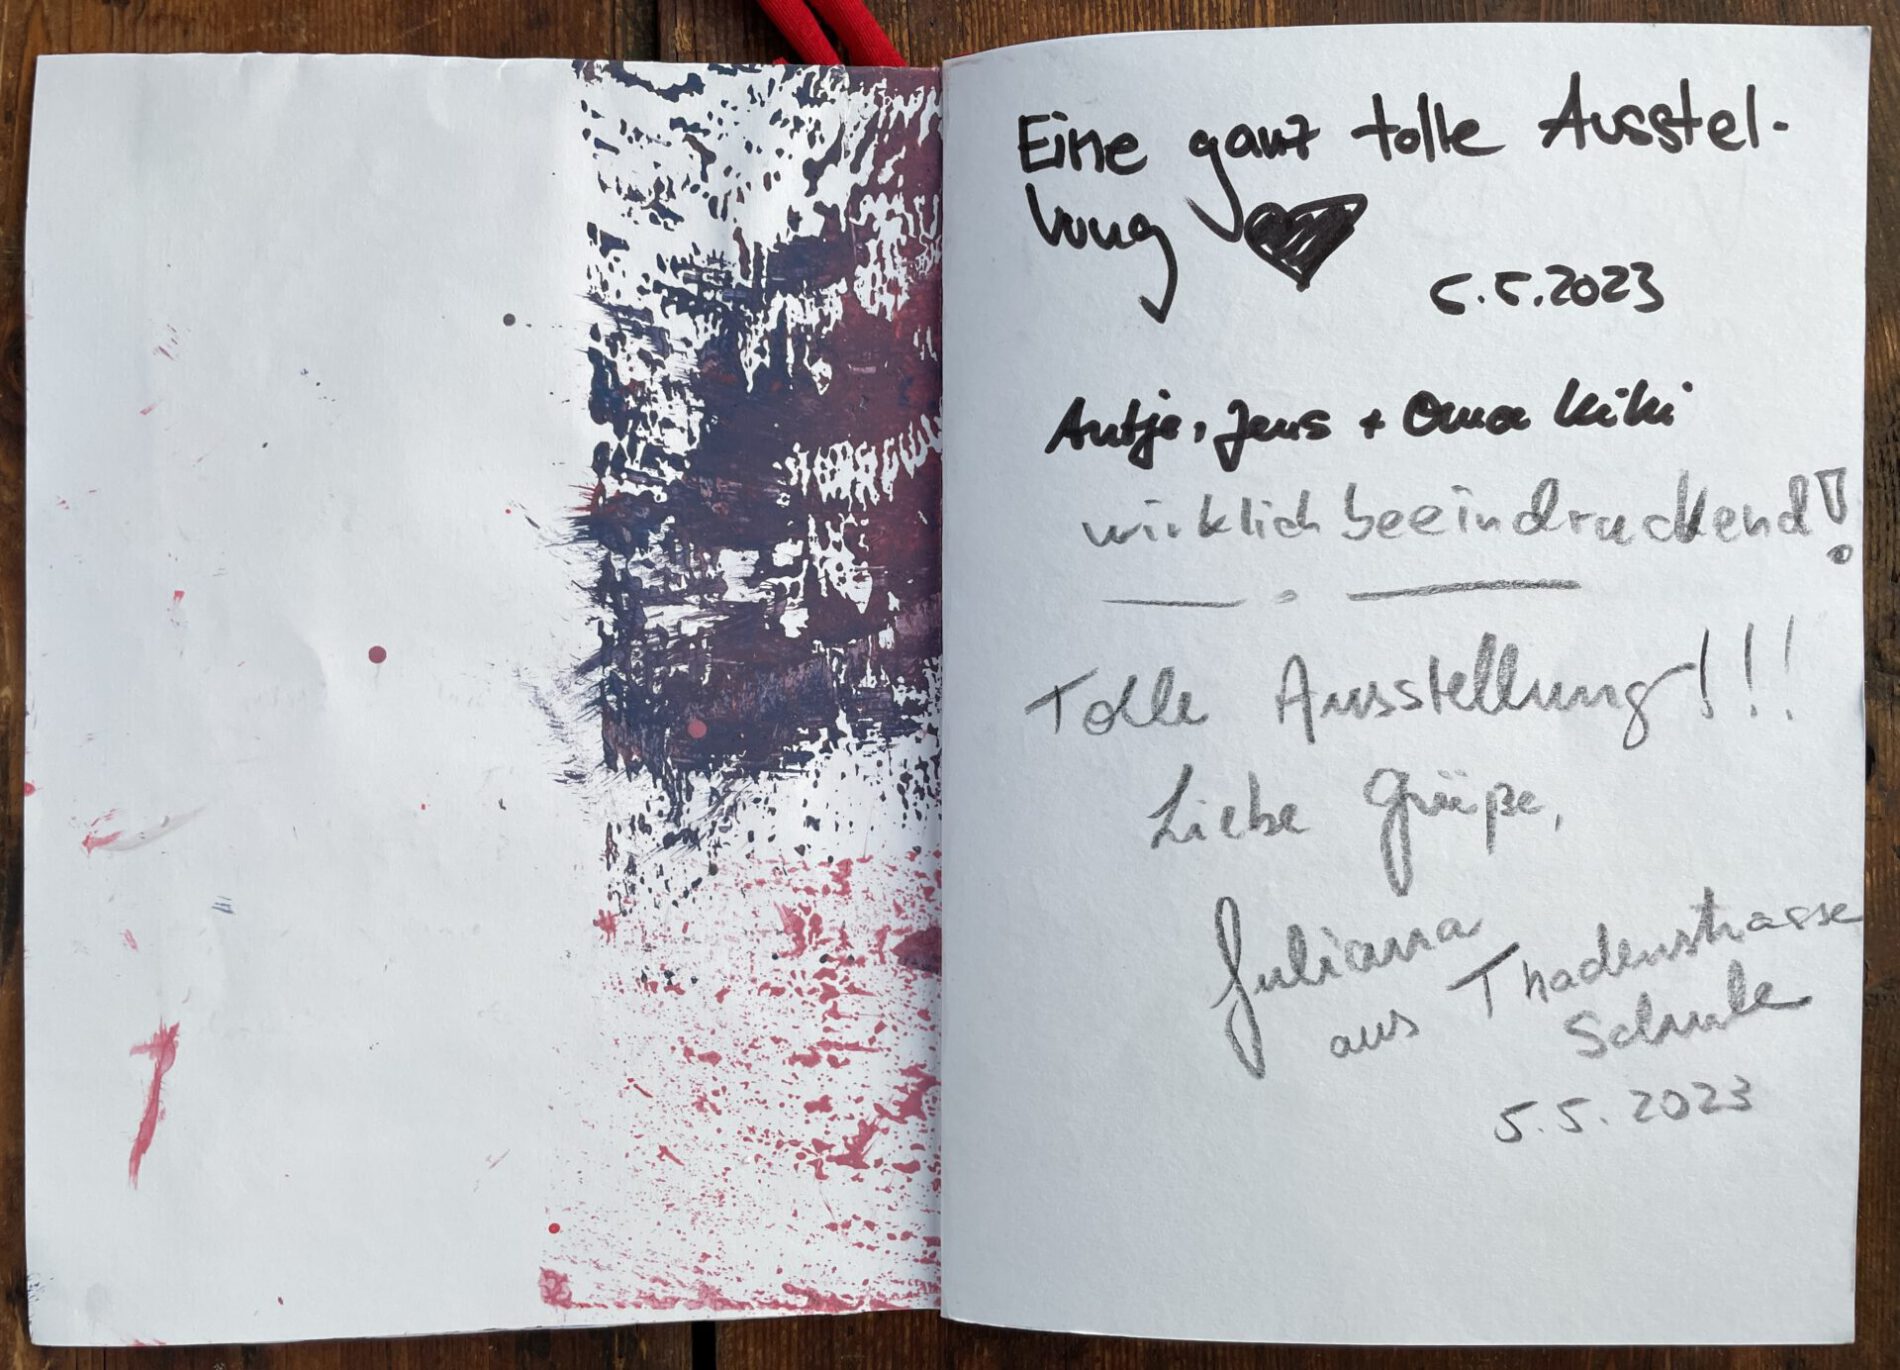 Eine ganz tolle Ausstel-
lung
5.5.2023
Antje, Jens + Oma Kiki
wirklich beeindruckend!
Tolle Ausstellung!!!
Liebe Grüße,
Julianna
aus Thadenstrasse
Schule
5.5.2023